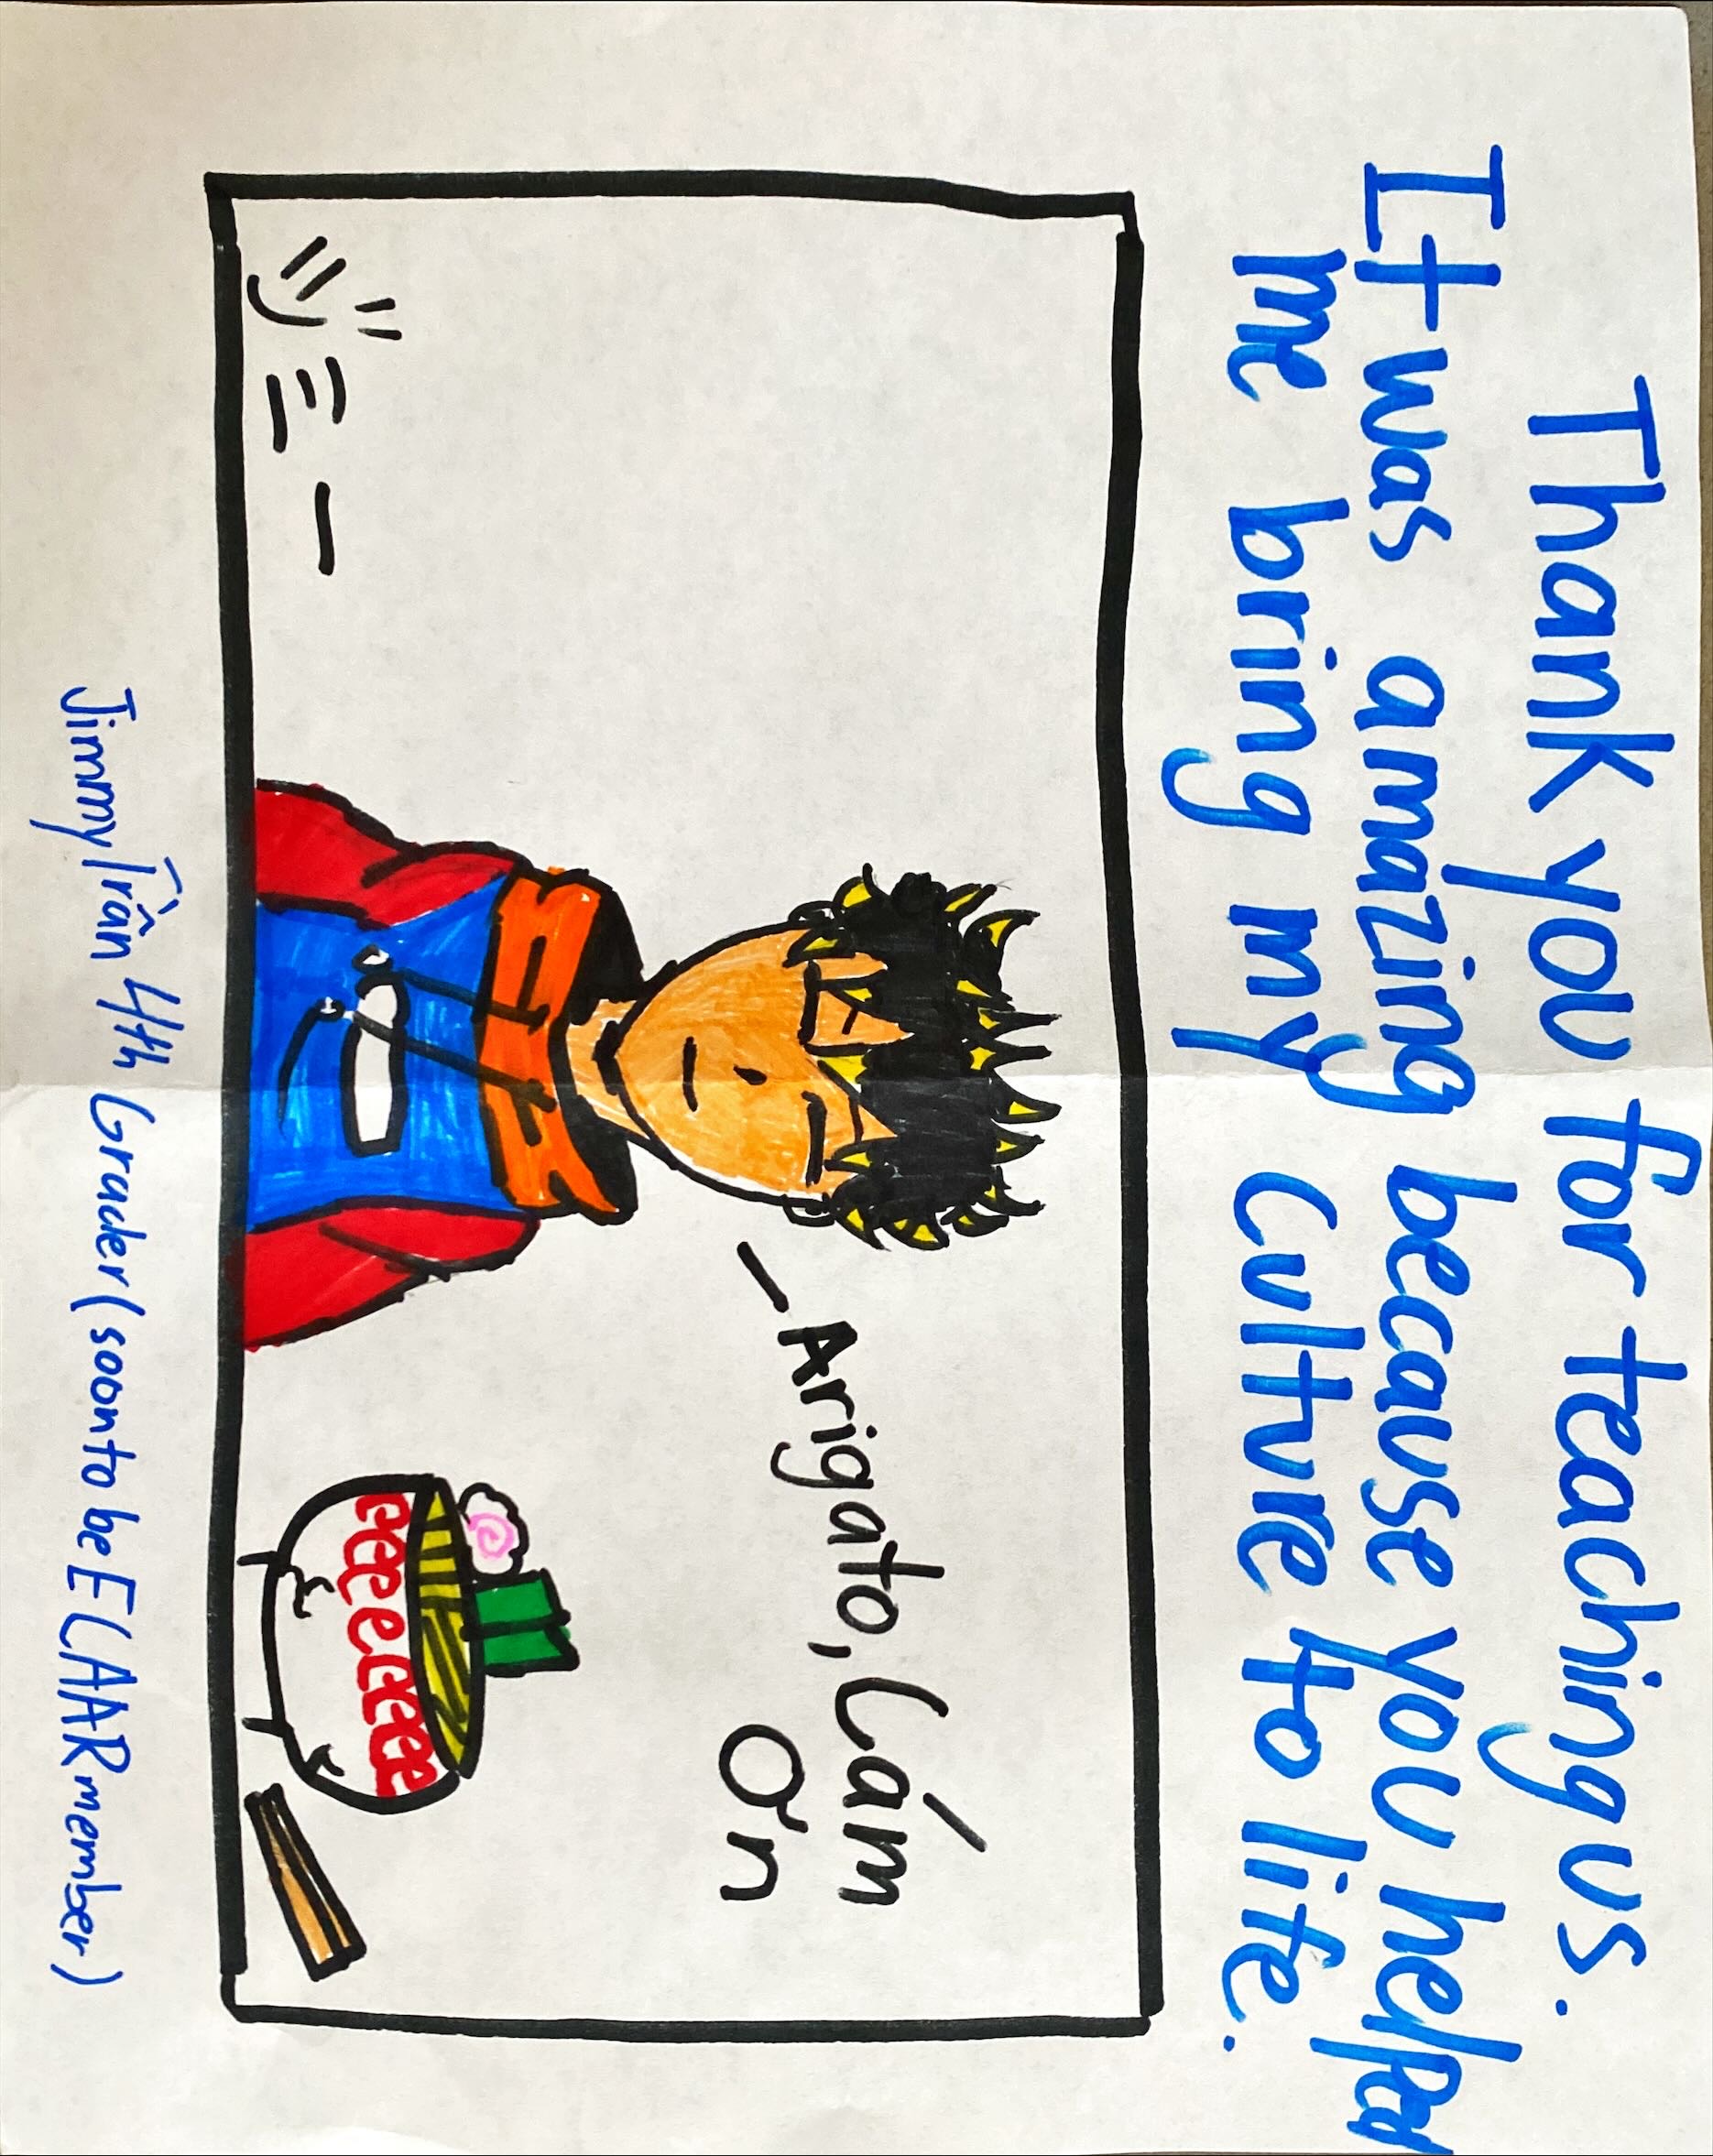 Thank you for teaching us.
It was amazing because you helped
me bring my culture to life.
Arigato, Cám
Ơn
ヅミー
Jimmy Trần 4th Grader (soon to be ECAAR member)